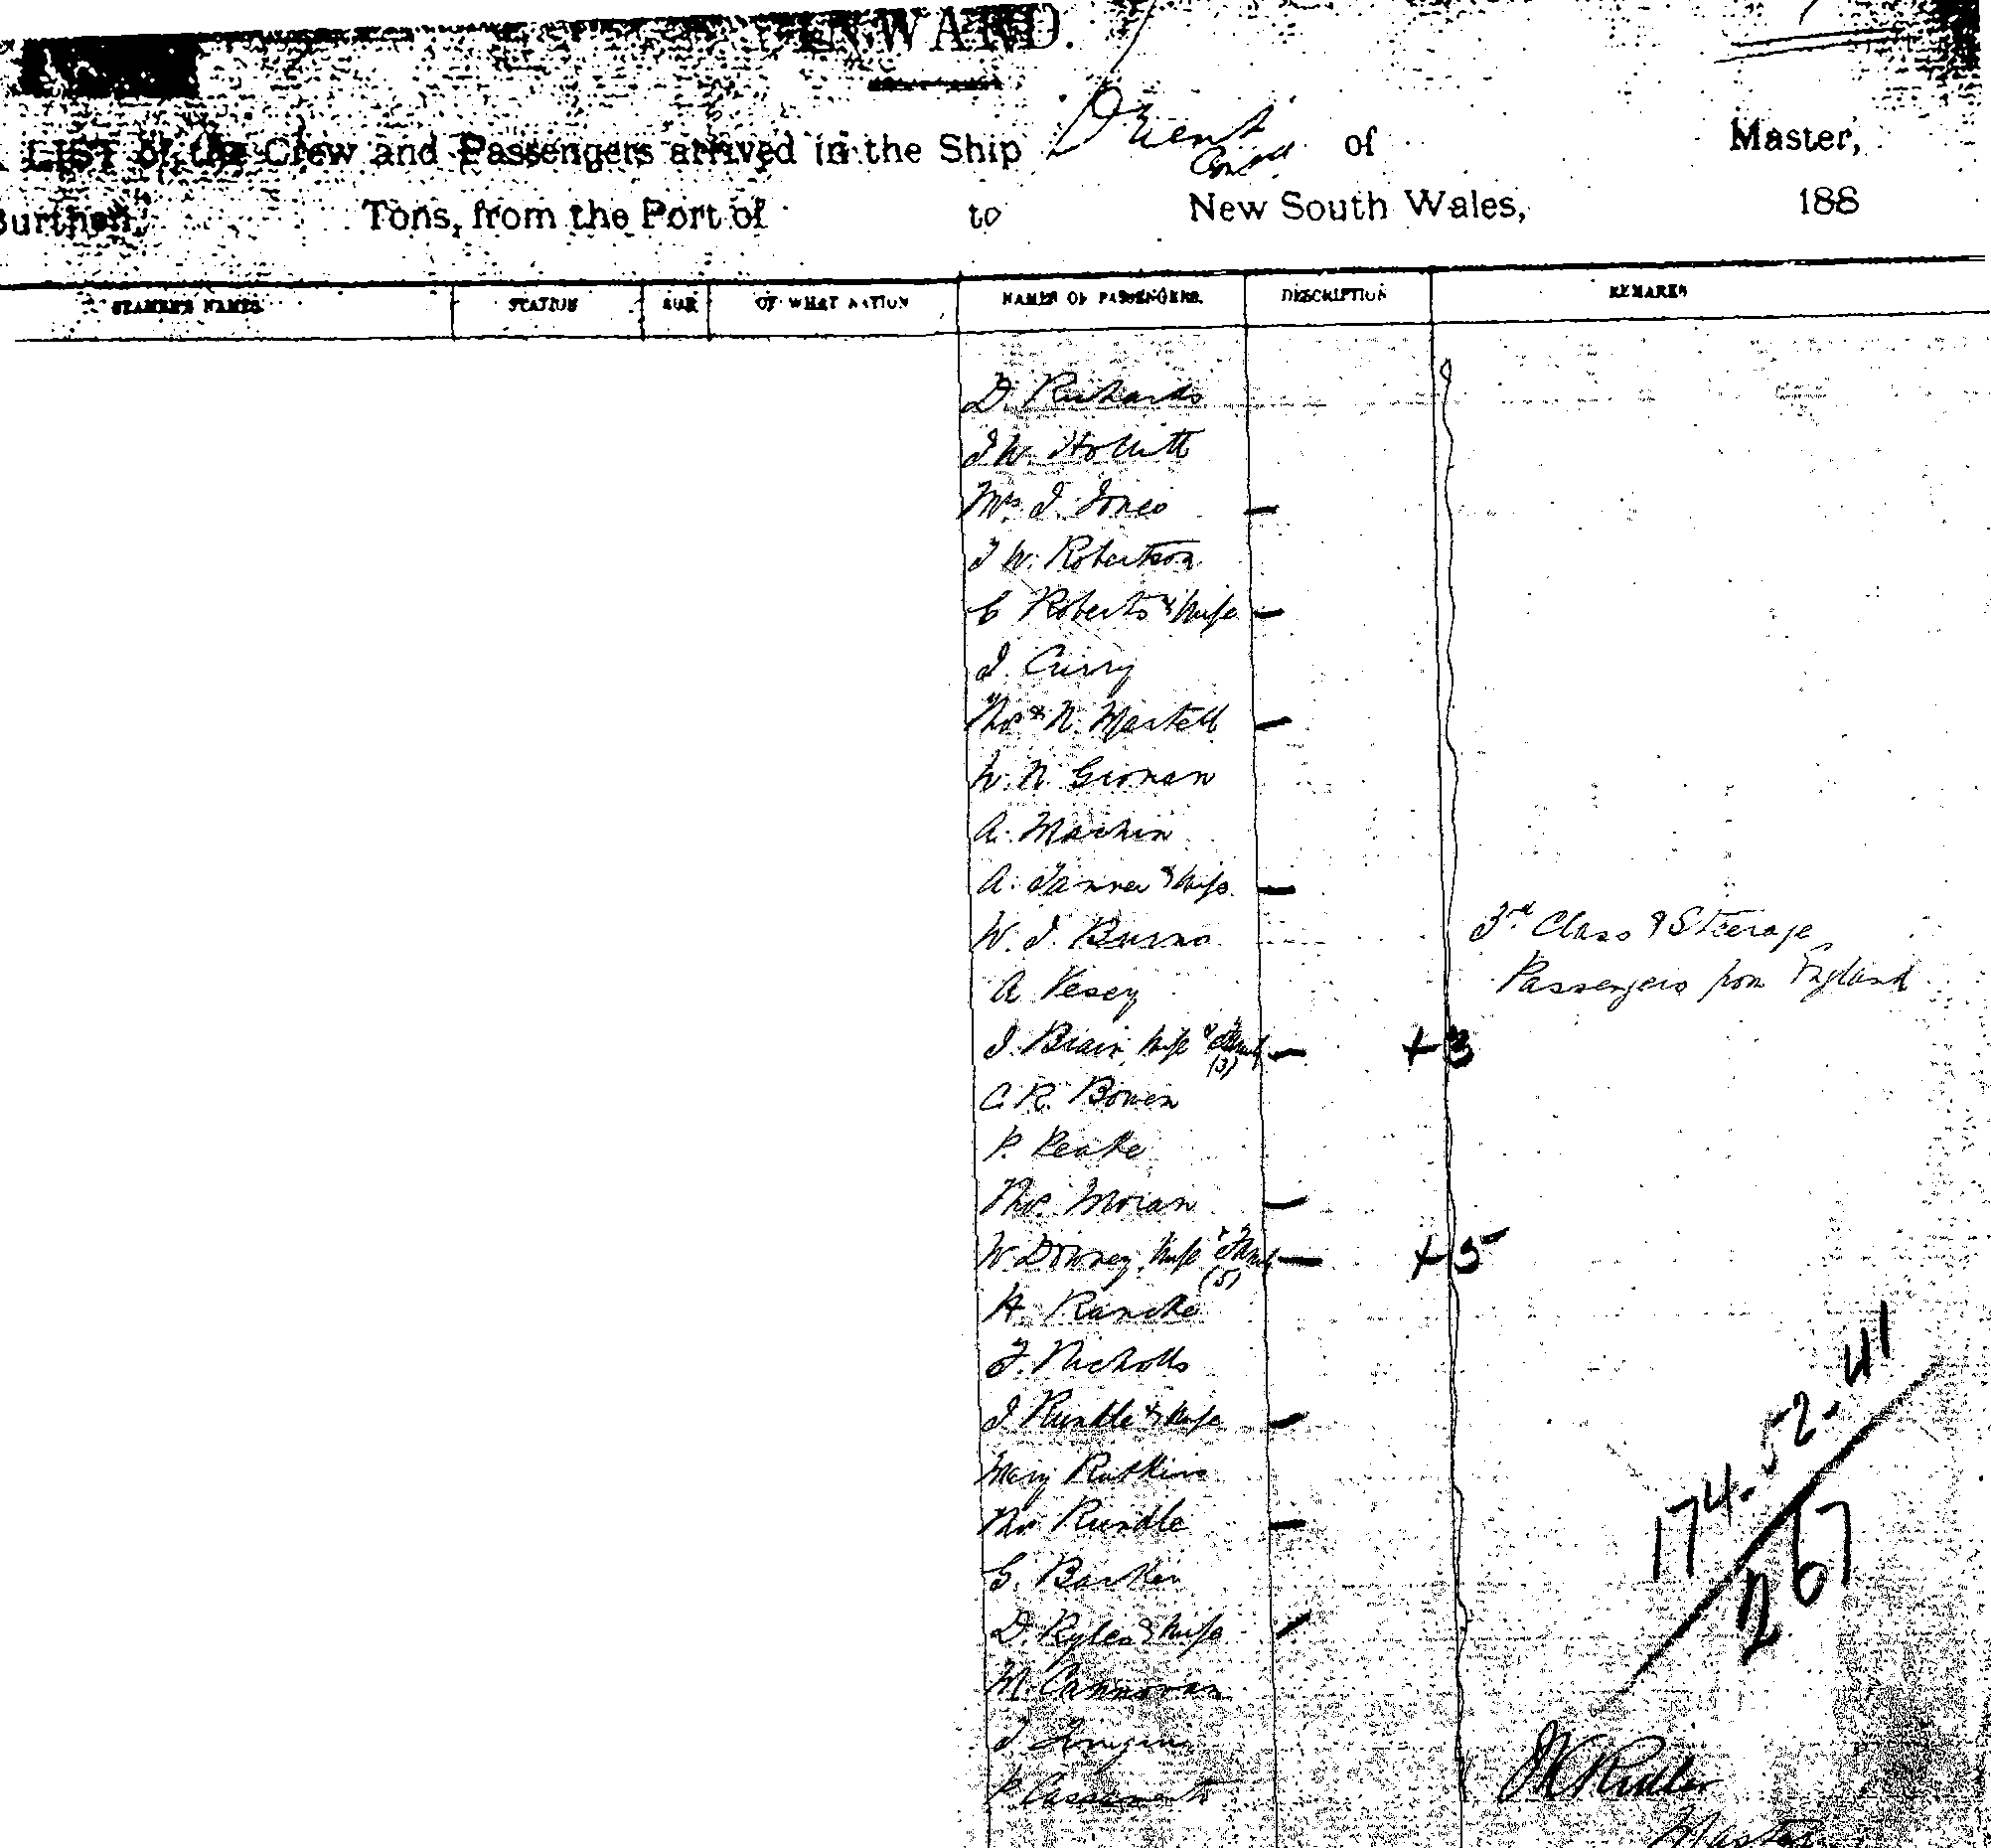 INWARD.
A LIST of the Crew and Passengers arrived in the Ship Orient of Master,
Cont
Burthen, Tons, from the Port of to New South Wales, 188
SEAMEN'S NAMES. STATION AGE OF WHAT NATION NAMES OF PASSENGERS. DESCRIPTION REMARKS
D. Richards
J W. Hollitt
Mrs J. Jones —
J W. Robertson
C Roberts & Wife —
J. Curry
Thos & N. Martell —
W. N. Gronan
A. Machin
A. Tanner & Wife —
W. J. Burns
3rd Class & Steerage
A Vesey
Passengers from England
J. Brain, Wife & Family (3) — + 3
C. R. Bowen
P. Peake
Thos. Moran —
W. Downey, Wife & Family (5) — + 5
H. Rancke
F. Nicholls
J. Rundle & Wife —
Mary Rutkins
Thos Rundle —
174. 52. 41
G. Barker
267
D. Ryles & Wife —
M. Cannovan
J.
P.
Master